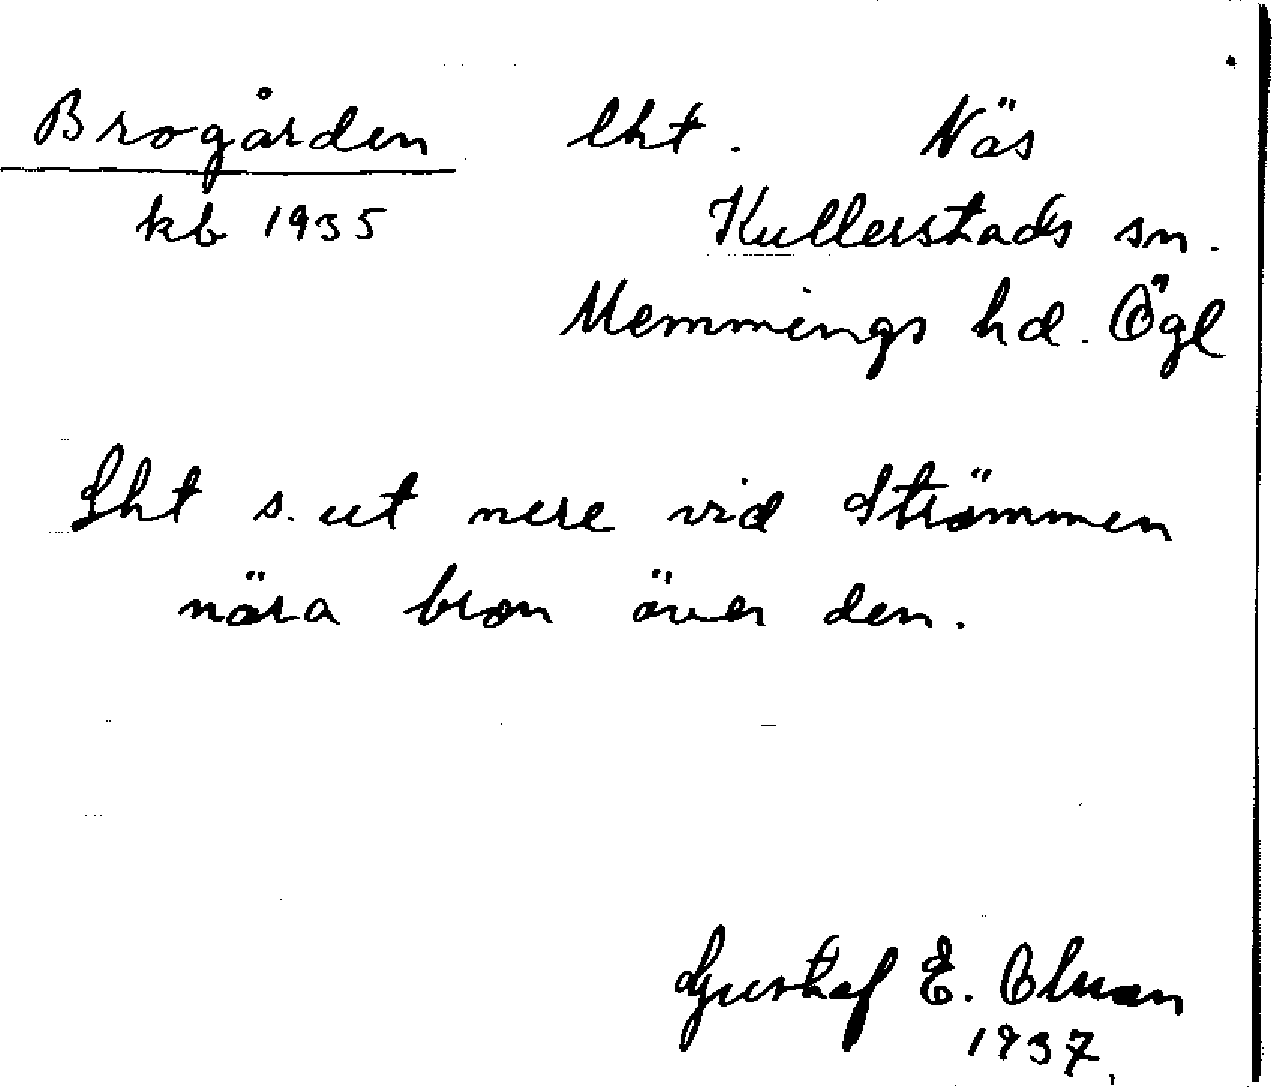 Brogården lht. Näs
kb 1935 Kullerstads sn.
Memmings hd. Ögl
Lht s. ut nere vid Strömmen
nära bron över den.
Gustaf E. Olsson
1937.